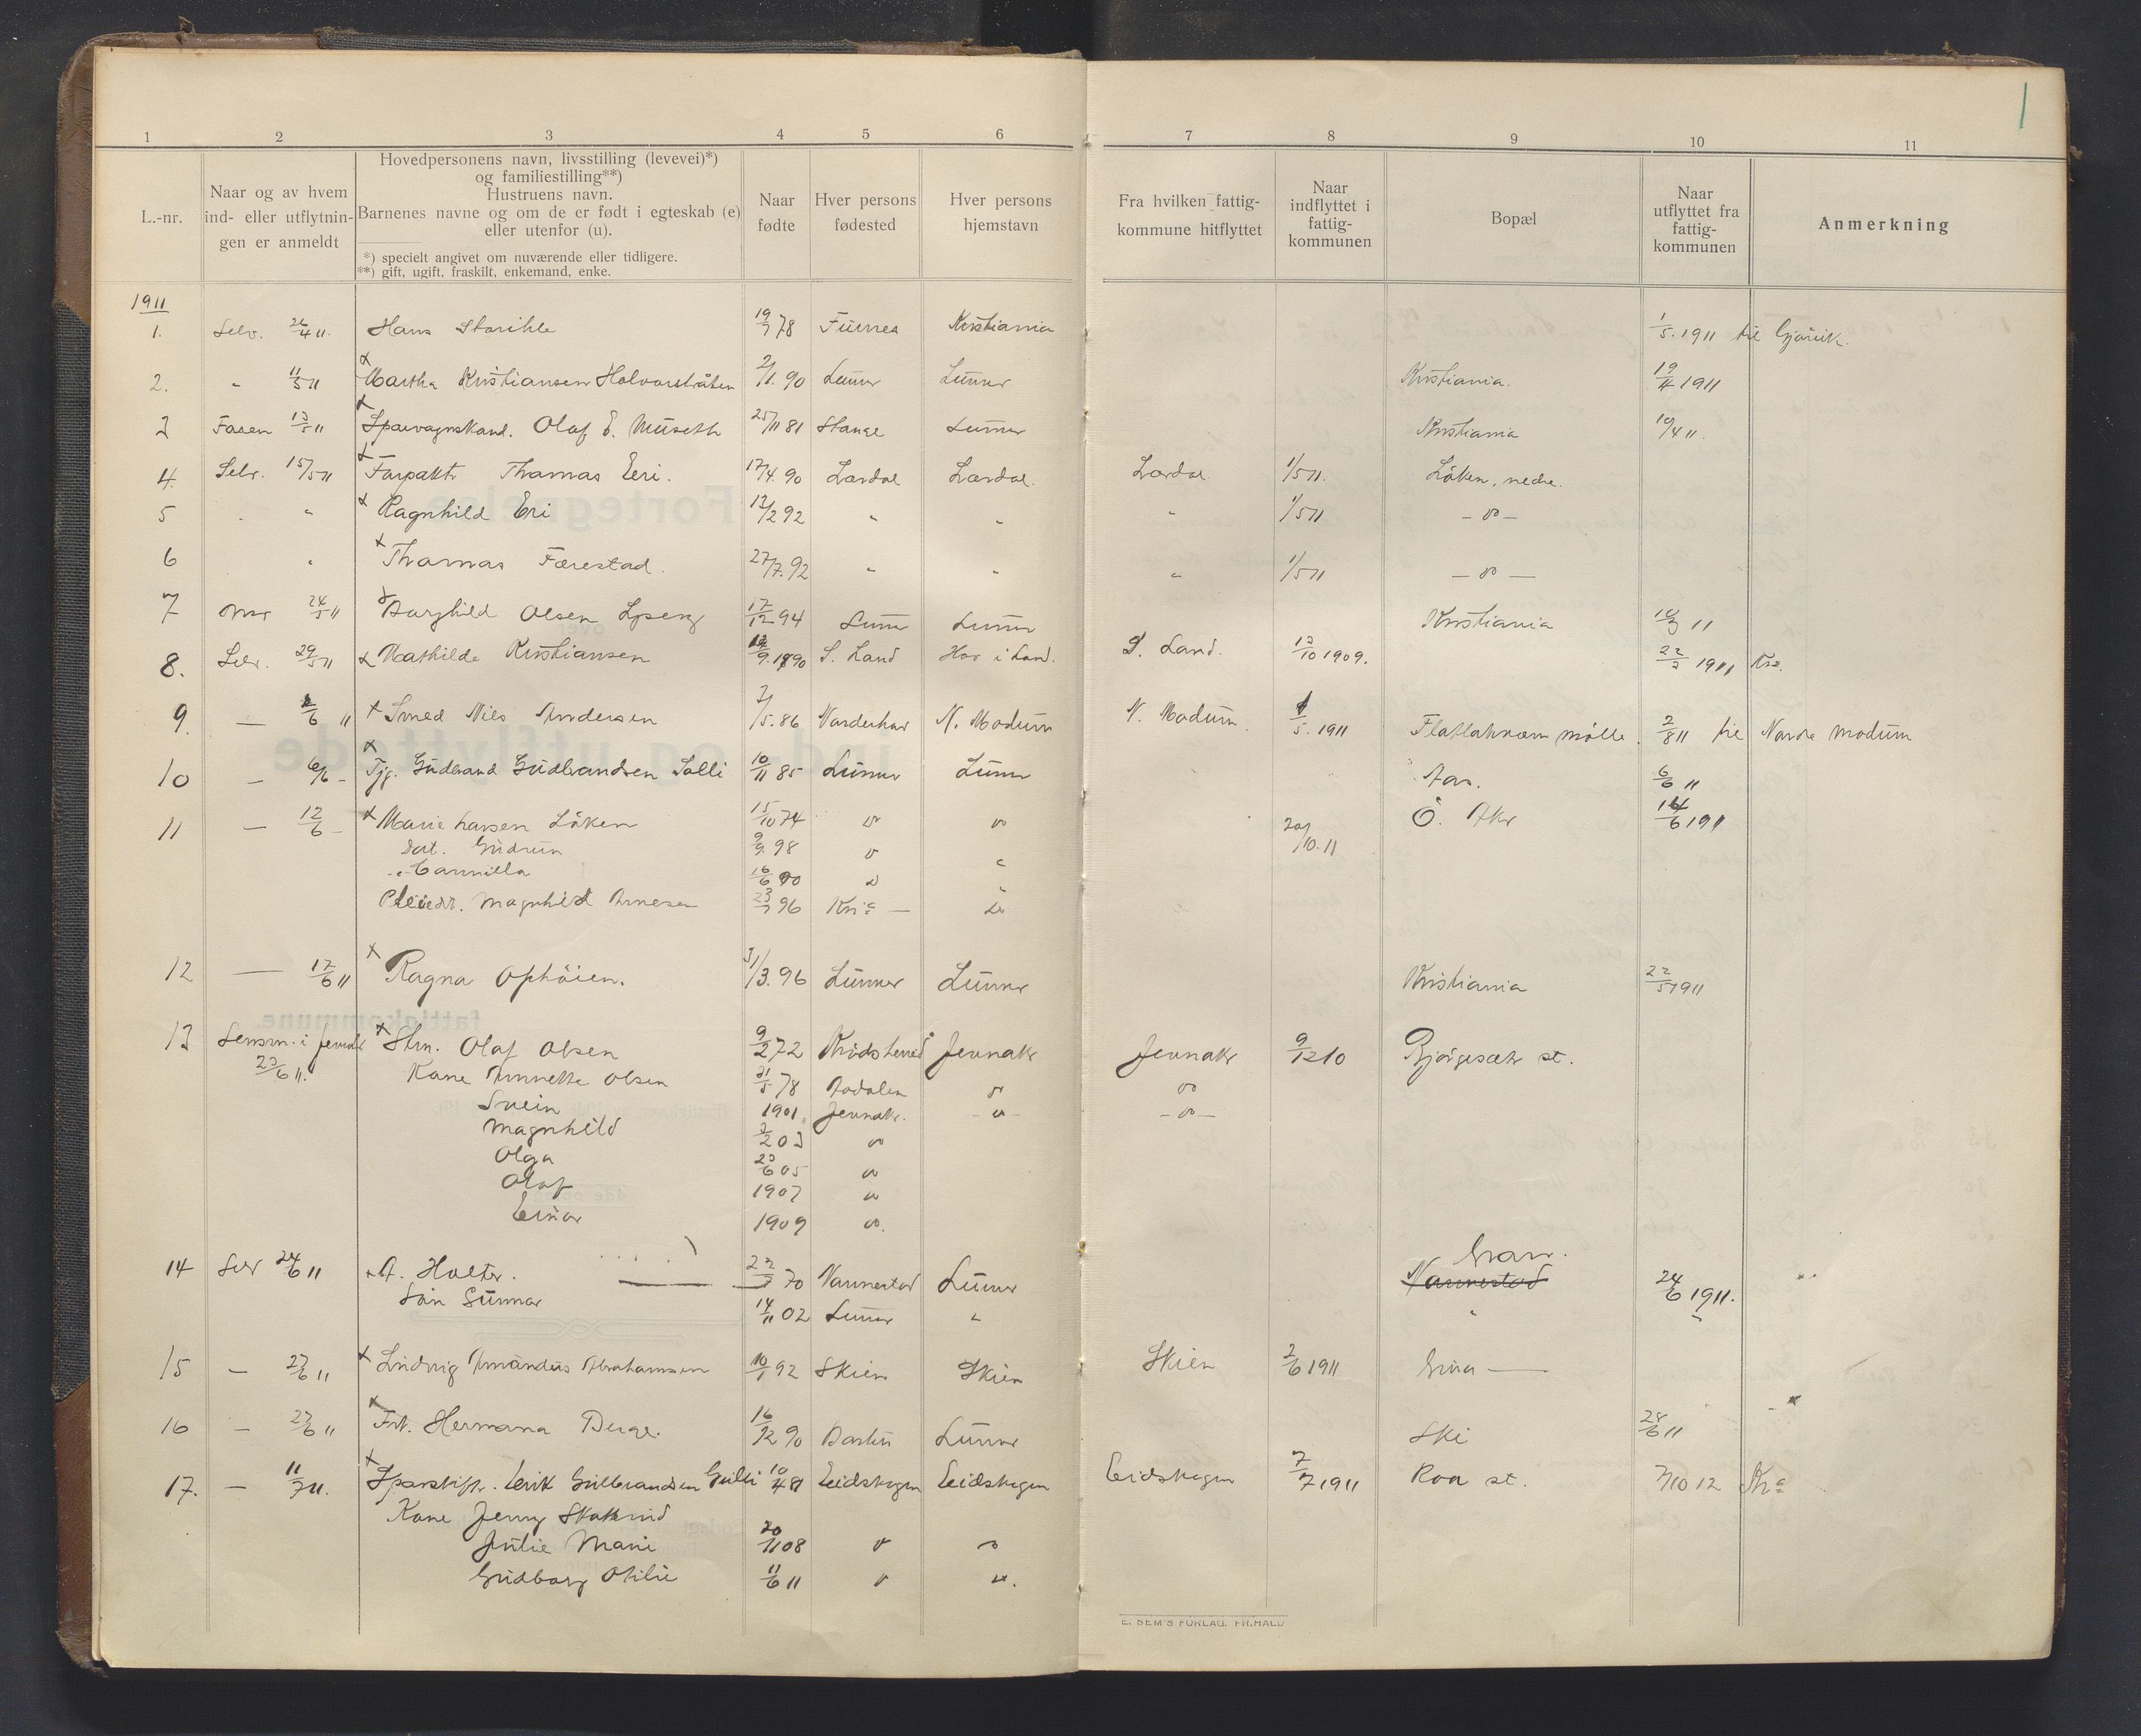 1
1 2 3 4 5 6 7 8 9 10 11
L.-nr.
Naar og av hvem
ind- eller utflytnin-
gen er anmeldt
Hovedpersonens navn, livsstilling (levevei)*)
og familiestilling**)
Hustruens navn.
Barnenes navne og om de er født i egteskab (e)
eller utenfor (u).
*) specielt angivet om nuværende eller tidligere.
**) gift, ugift, fraskilt, enkemand, enke.
Naar
fødte
Hver persons
fødested
Hver persons
hjemstavn
Fra hvilken fattig-
kommune hitflyttet
Naar
indflyttet i
fattig-
kommunen
Bopæl
Naar
utflyttet fra
fattig-
kommunen
Anmerkning
1911
1. Selv. 26/4 11. Hans 19/7 78 Furnes Kristiania 1/5. 1911 til Gjøvik.
2. " 11/5 11 Martha Kristiansen Halvorsbråten 2/1. 90 Lunner Lunner Kristiania. 19/4 1911
3 13/5 11 Sporvognskond. Olaf E. Museth 25/11 81 Stange Lunner Kristiania 10/4 11.
4. Selv. 15/5 11 Forpakter Thomas Eri. 17/4. 90 Lærdal Lærdal. Lærdal. 1/5 11. Løken, nedre.
5 " Ragnhild Eri 12/2 92 " " " 1/5 11 - do -
6 " Thomas Færestad. 27/7. 92 " " " 1/5 11 - do -
7 Mor 24/5 11 Borghild Olsen 17/12 94 Lunner Lunner Kristiania 11
8. Selv. 29/5 11 Mathilde Kristiansen 9. 1890 S. Land Hov i Land. S. Land. 13/10 1909. 22/3 1911 Kra.
9. — /6 11 Smed Nils Andersen 7/5. 86 Norderhov N. Modum N. Modum 1/5. 1911 mølle. 2/8 11 til Nordre Modum
10 — 6/6 - Tjg. Gudbrand Gudbrandsen Solli 10/11 85 Lunner Lunner Aas. 6/6 11
11 — 12/6 - Marie Larsen Løken 15/10 74 do do 20/10. 11 Ö. Aker 14/6 1911
Dat. Gudrun 9/9. 98 do "
-"- Camilla 16/6 00 do "
Pleiedt. Magnhild Arnesen 23/7 96 Kria — do
12 — 17/6 11 Ragna Ophøien. 31/3. 96 Lunner Lunner Kristiania 22/5 1911
13 Lensm. i Jevnaker 23/6 11. Stm. Olaf Olsen 9/2 72 Krødsherred Jevnaker Jevnaker 9/12 10 Bjørgesæter st.
Kone Annette Olsen 21/5 78 Aadalen do do
Svein 1901 Jevnaker. - do - - do -
Magnhild 3/2 03 do
Olga 23/6 05 do
Olaf 1907 do
Einar 1909 do.
14 Selv 24/6 11 A. Holter. 70 Nannestad Lunner Nannestad Gran. 24/6 1911.
Søn Gunnar 14/11 02 Lunner " " "
15 — 27/6 11 Ludvig Amandus Abrahamsen 10/1 92 Skien Skien Skien 2/6 1911 Grua —
16 — 27/6 11 Frk. Hermana Berge. 16/12 90 Lunner Ski 28/6 11
17. — 11/7 11. Sporskifter. Eirik Gulbrandsen Gulli 10/4 81 Eidskogen Eidskogen Eidskogen 7/7 1911 Roa st. 7/10 12 Kra
Kone Jenny
Julie Marie 20/11 08 do do
Gudborg Otilie 11/6 11 do do.
E. SEM'S FORLAG. FR.HALD